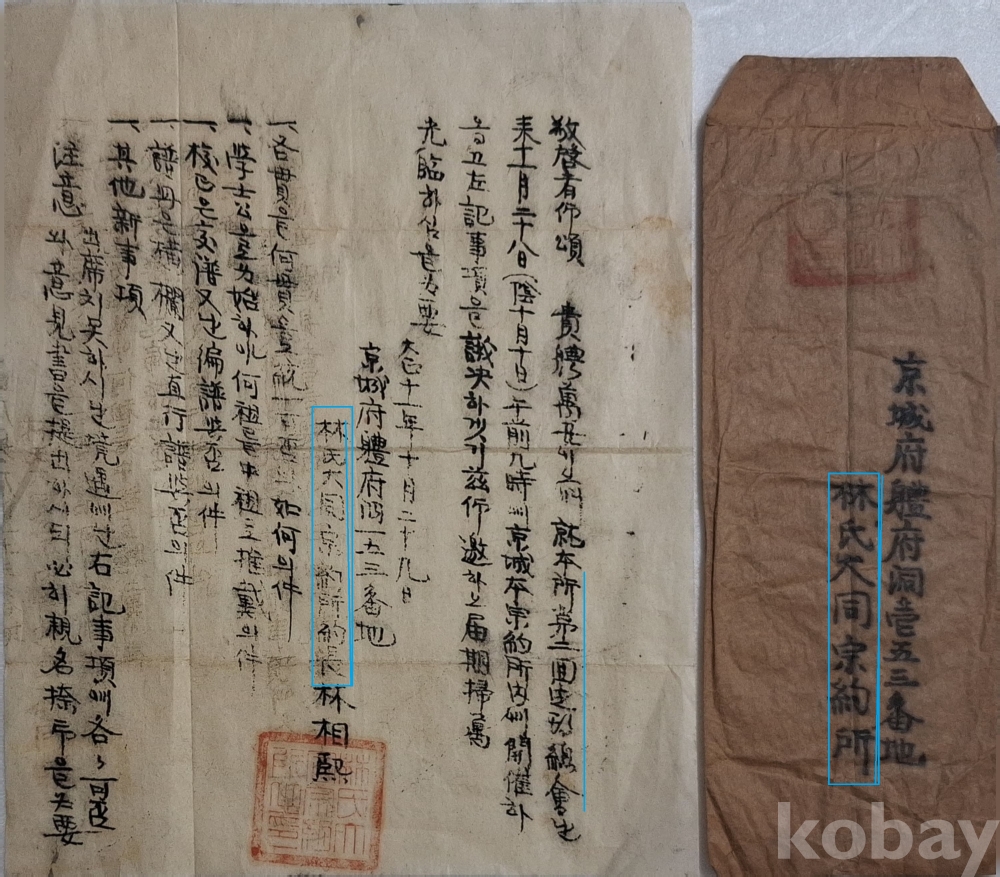 敬啓者仰頌 貴體萬旺하시며 就本所第二回定期總會는
来十一月二十八日(陰十月十日)午前九時에京城本宗約所內에開催하
左記事項을議決하깃기玆仰邀하오니届期掃萬
光臨하심을為要
大正十一年十月二十九日
京城府體府洞一五三番地
林氏大同宗約所約長林相熙
一、各貫은何貫 如何의件
一、學士公으로為始하야何祖로中祖로推戴의件
一、校正은 譜又는偏譜 與否의件
一、譜冊은橫欄又는直行譜 의件
一、其他新事項
出席치못하시는 境遇에는右記事項에各各可否
注意 와意見書를提出하시되必히親名捺印을為要
京城府體府洞壹五三番地
林氏大同宗約所
kobay